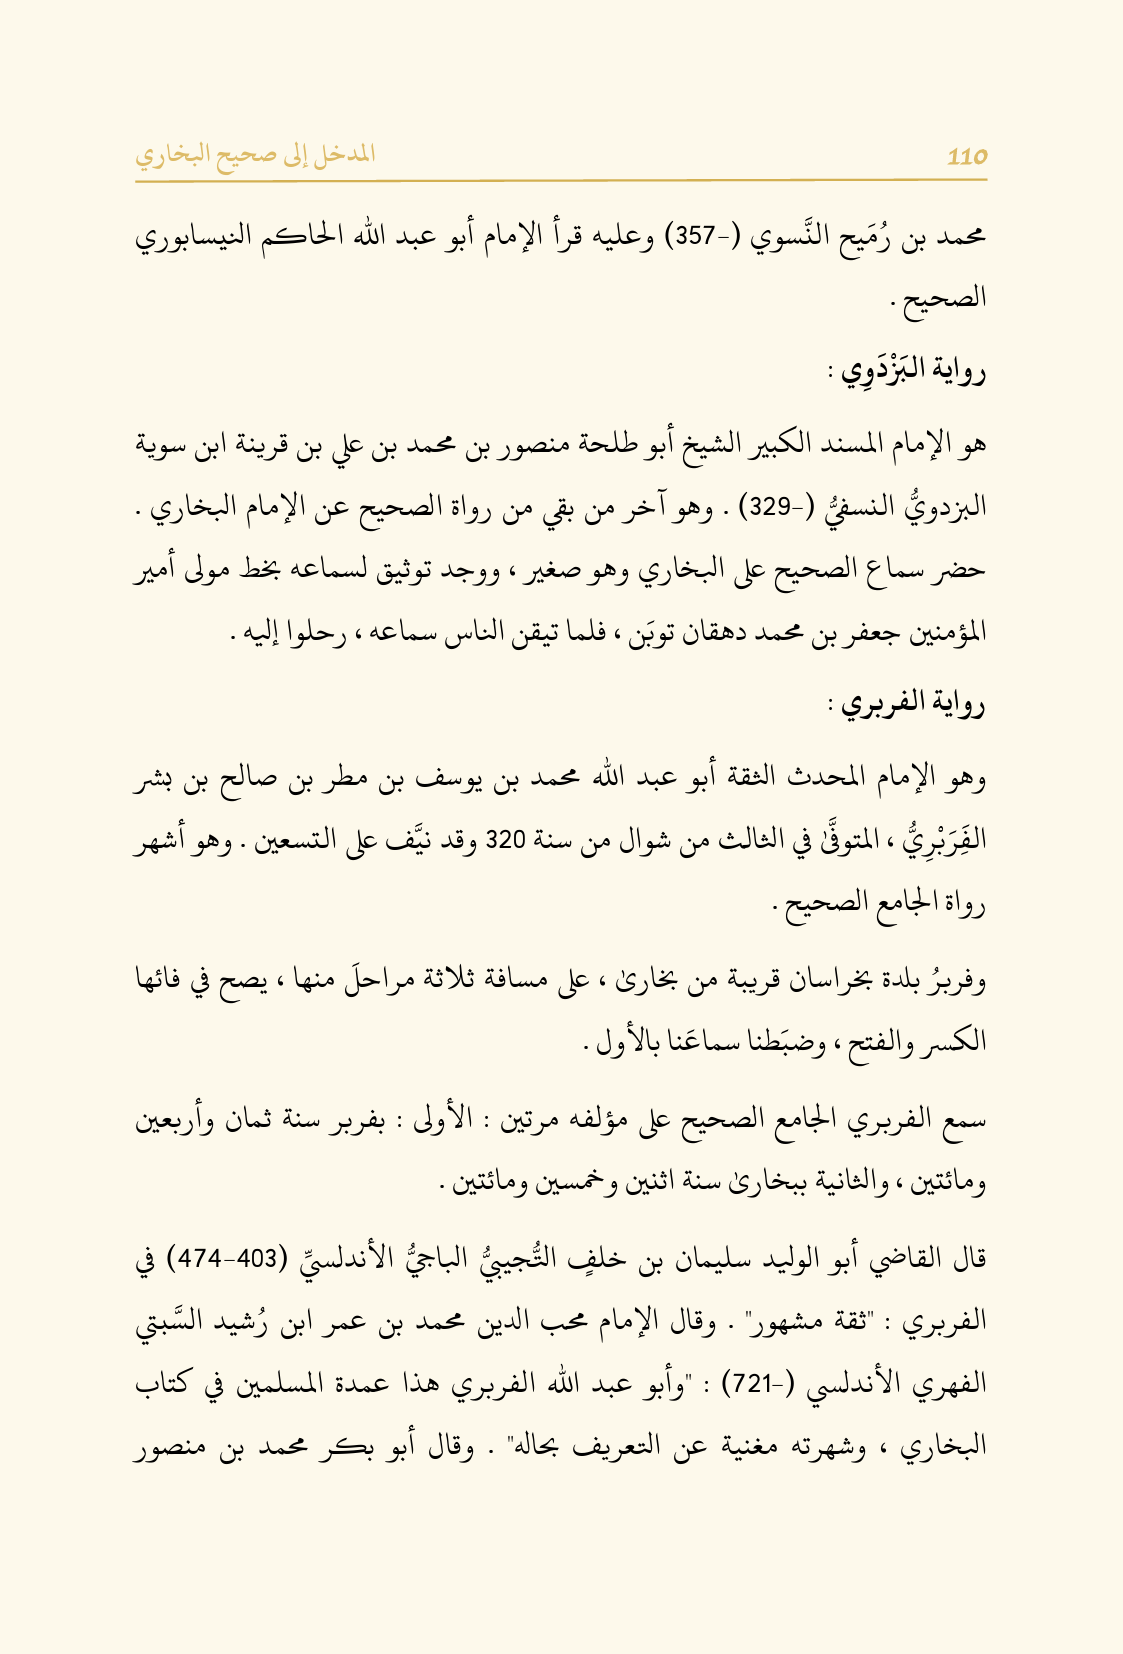 110 المدخل إلى صحيح البخاري
محمد بن رُمَيح النَّسوي (-357) وعليه قرأ الإمام أبو عبد الله الحاكم النيسابوري
الصحيح .
رواية البَزْدَوِي :
هو الإمام المسند الكبير الشيخ أبو طلحة منصور بن محمد بن علي بن قرينة ابن سوية
البزدويُّ النسفيُّ (-329) . وهو آخر من بقي من رواة الصحيح عن الإمام البخاري .
حضر سماع الصحيح على البخاري وهو صغير ، ووجد توثيق لسماعه بخط مولى أمير
المؤمنين جعفر بن محمد دهقان توبَن ، فلما تيقن الناس سماعه ، رحلوا إليه .
رواية الفربري :
وهو الإمام المحدث الثقة أبو عبد الله محمد بن يوسف بن مطر بن صالح بن بشر
الفَِرَبْرِيُّ ، المتوفَّىٰ في الثالث من شوال من سنة 320 وقد نيَّف على التسعين . وهو أشهر
رواة الجامع الصحيح .
وفربرُ بلدة بخراسان قريبة من بخارىٰ ، على مسافة ثلاثة مراحلَ منها ، يصح في فائها
الكسر والفتح ، وضبَطنا سماعَنا بالأول .
سمع الفربري الجامع الصحيح على مؤلفه مرتين : الأولى : بفربر سنة ثمان وأربعين
ومائتين ، والثانية ببخارىٰ سنة اثنين وخمسين ومائتين .
قال القاضي أبو الوليد سليمان بن خلفٍ التُّجيبيُّ الباجيُّ الأندلسيِّ (403-474) في
الفربري : "ثقة مشهور" . وقال الإمام محب الدين محمد بن عمر ابن رُشيد السَّبتي
الفهري الأندلسي (-721) : "وأبو عبد الله الفربري هذا عمدة المسلمين في كتاب
البخاري ، وشهرته مغنية عن التعريف بحاله" . وقال أبو بكر محمد بن منصور